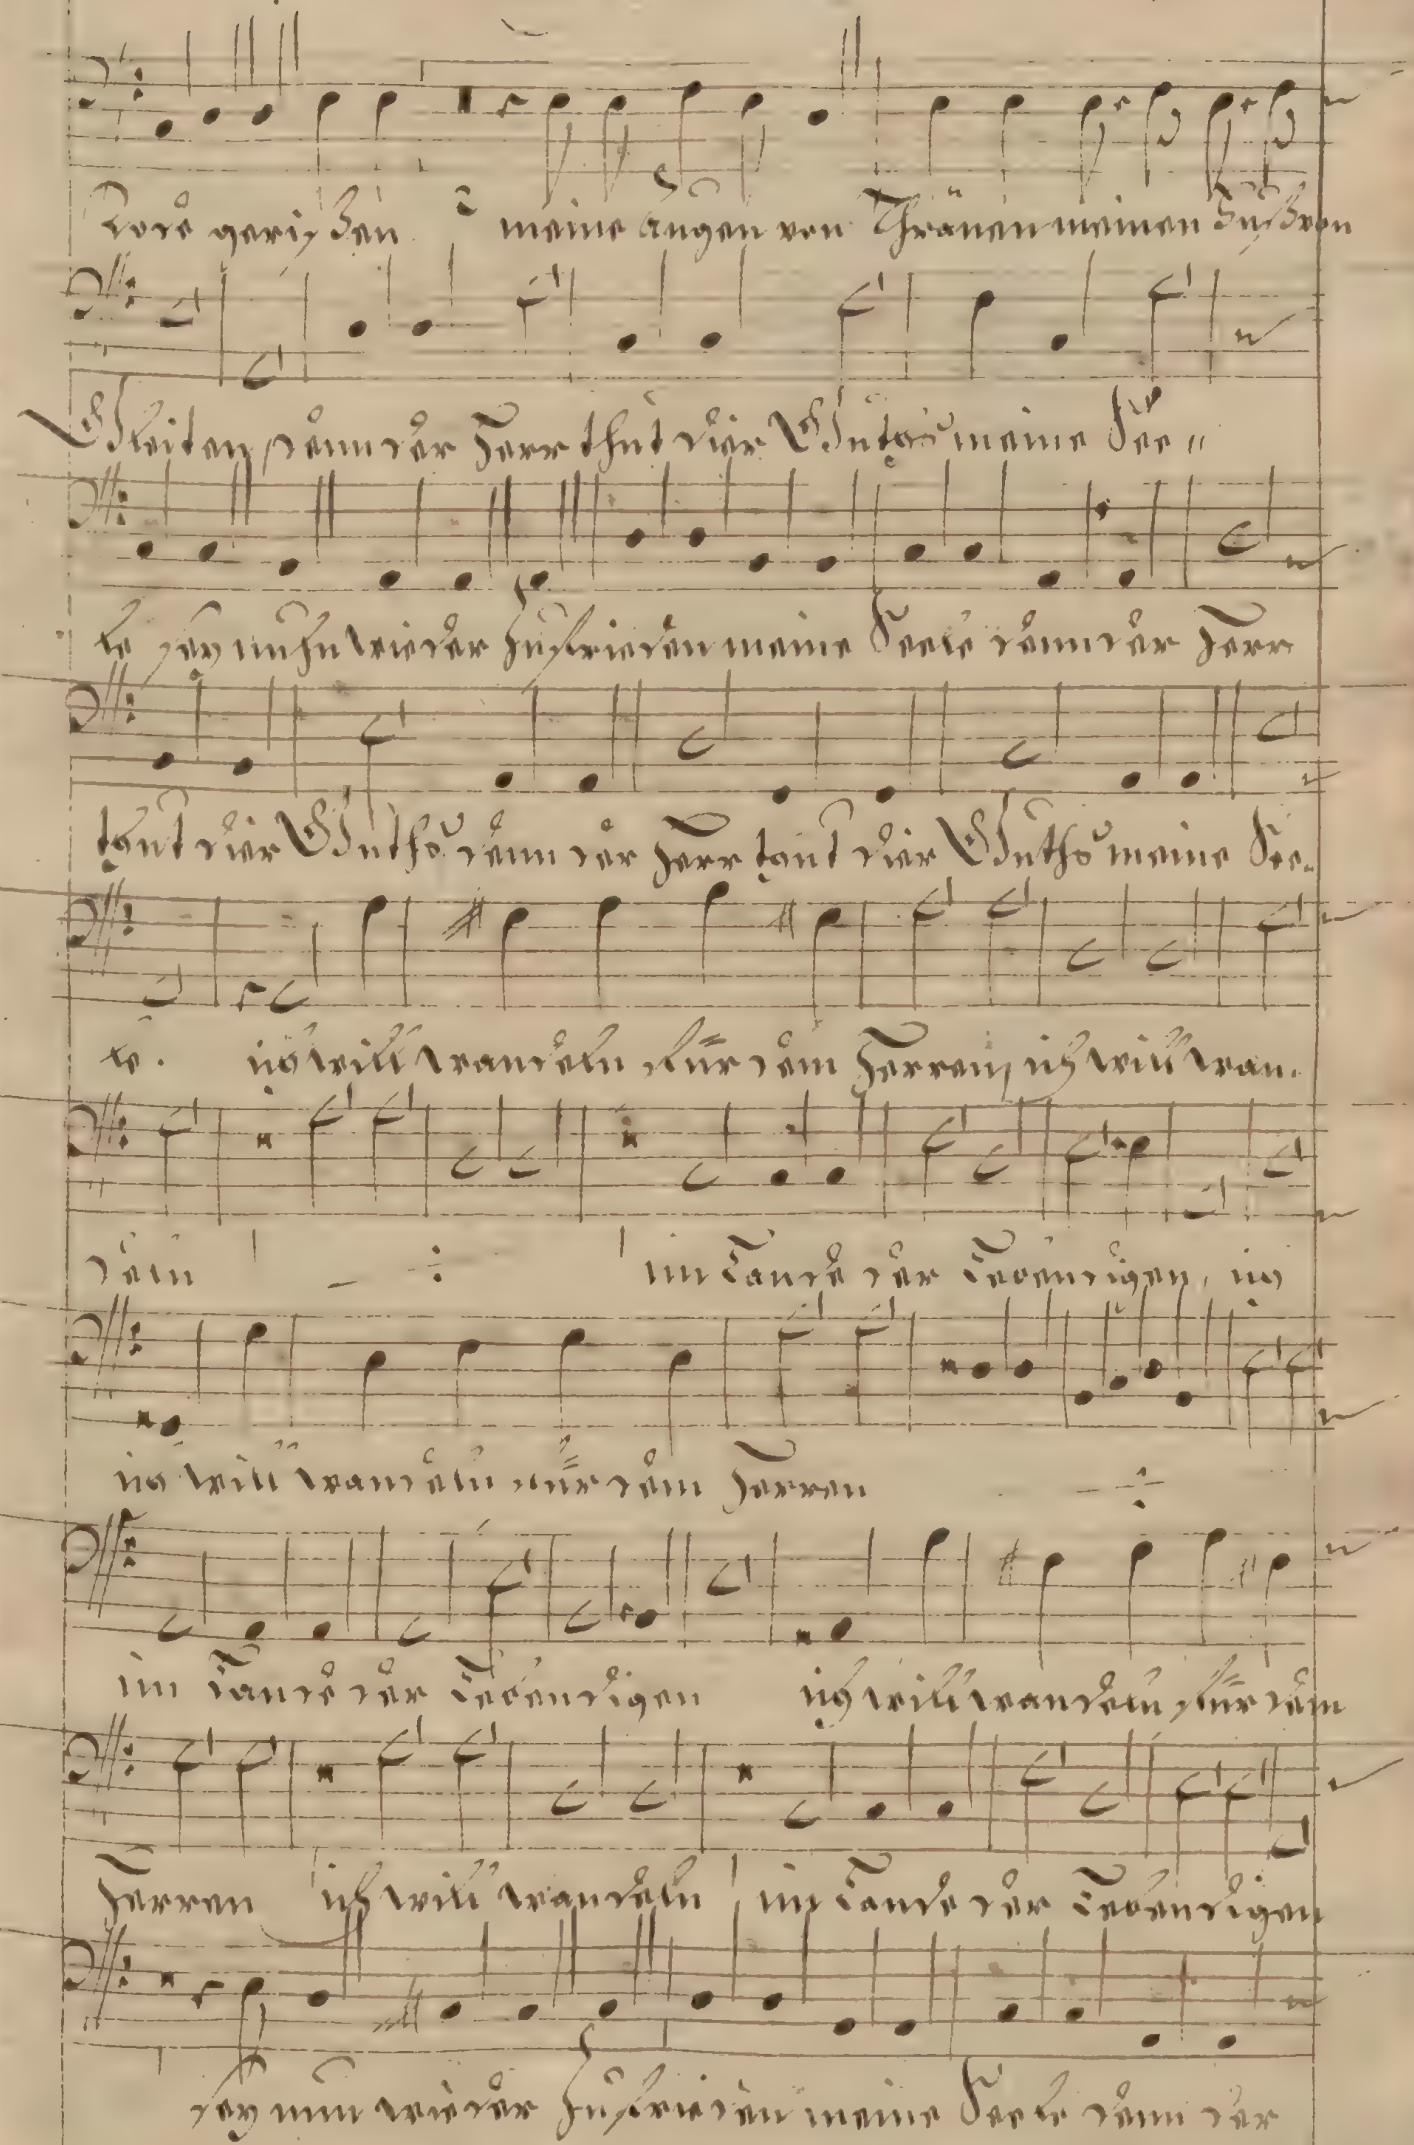 Tode gerißen meine Augen von Thränen meinen Fuß von
Gleiten, denn der Herr thut dier Gutes meine See„
le sey nuhn wieder zufrieden meine Seele denn der Herr
thut dier Guths denn der Herr thut dier Guths meine See„
le. ich will wandeln für dem Herren, ich will wan„
deln im Lande der Lebendigen, ich
ich will wandeln für dem Herren
im Lande der Lebendigen ich will wandeln für dem
Herren ich will wandeln im Lande der Lebendigen
sey nun wieder zufrieden meine Seele denn der